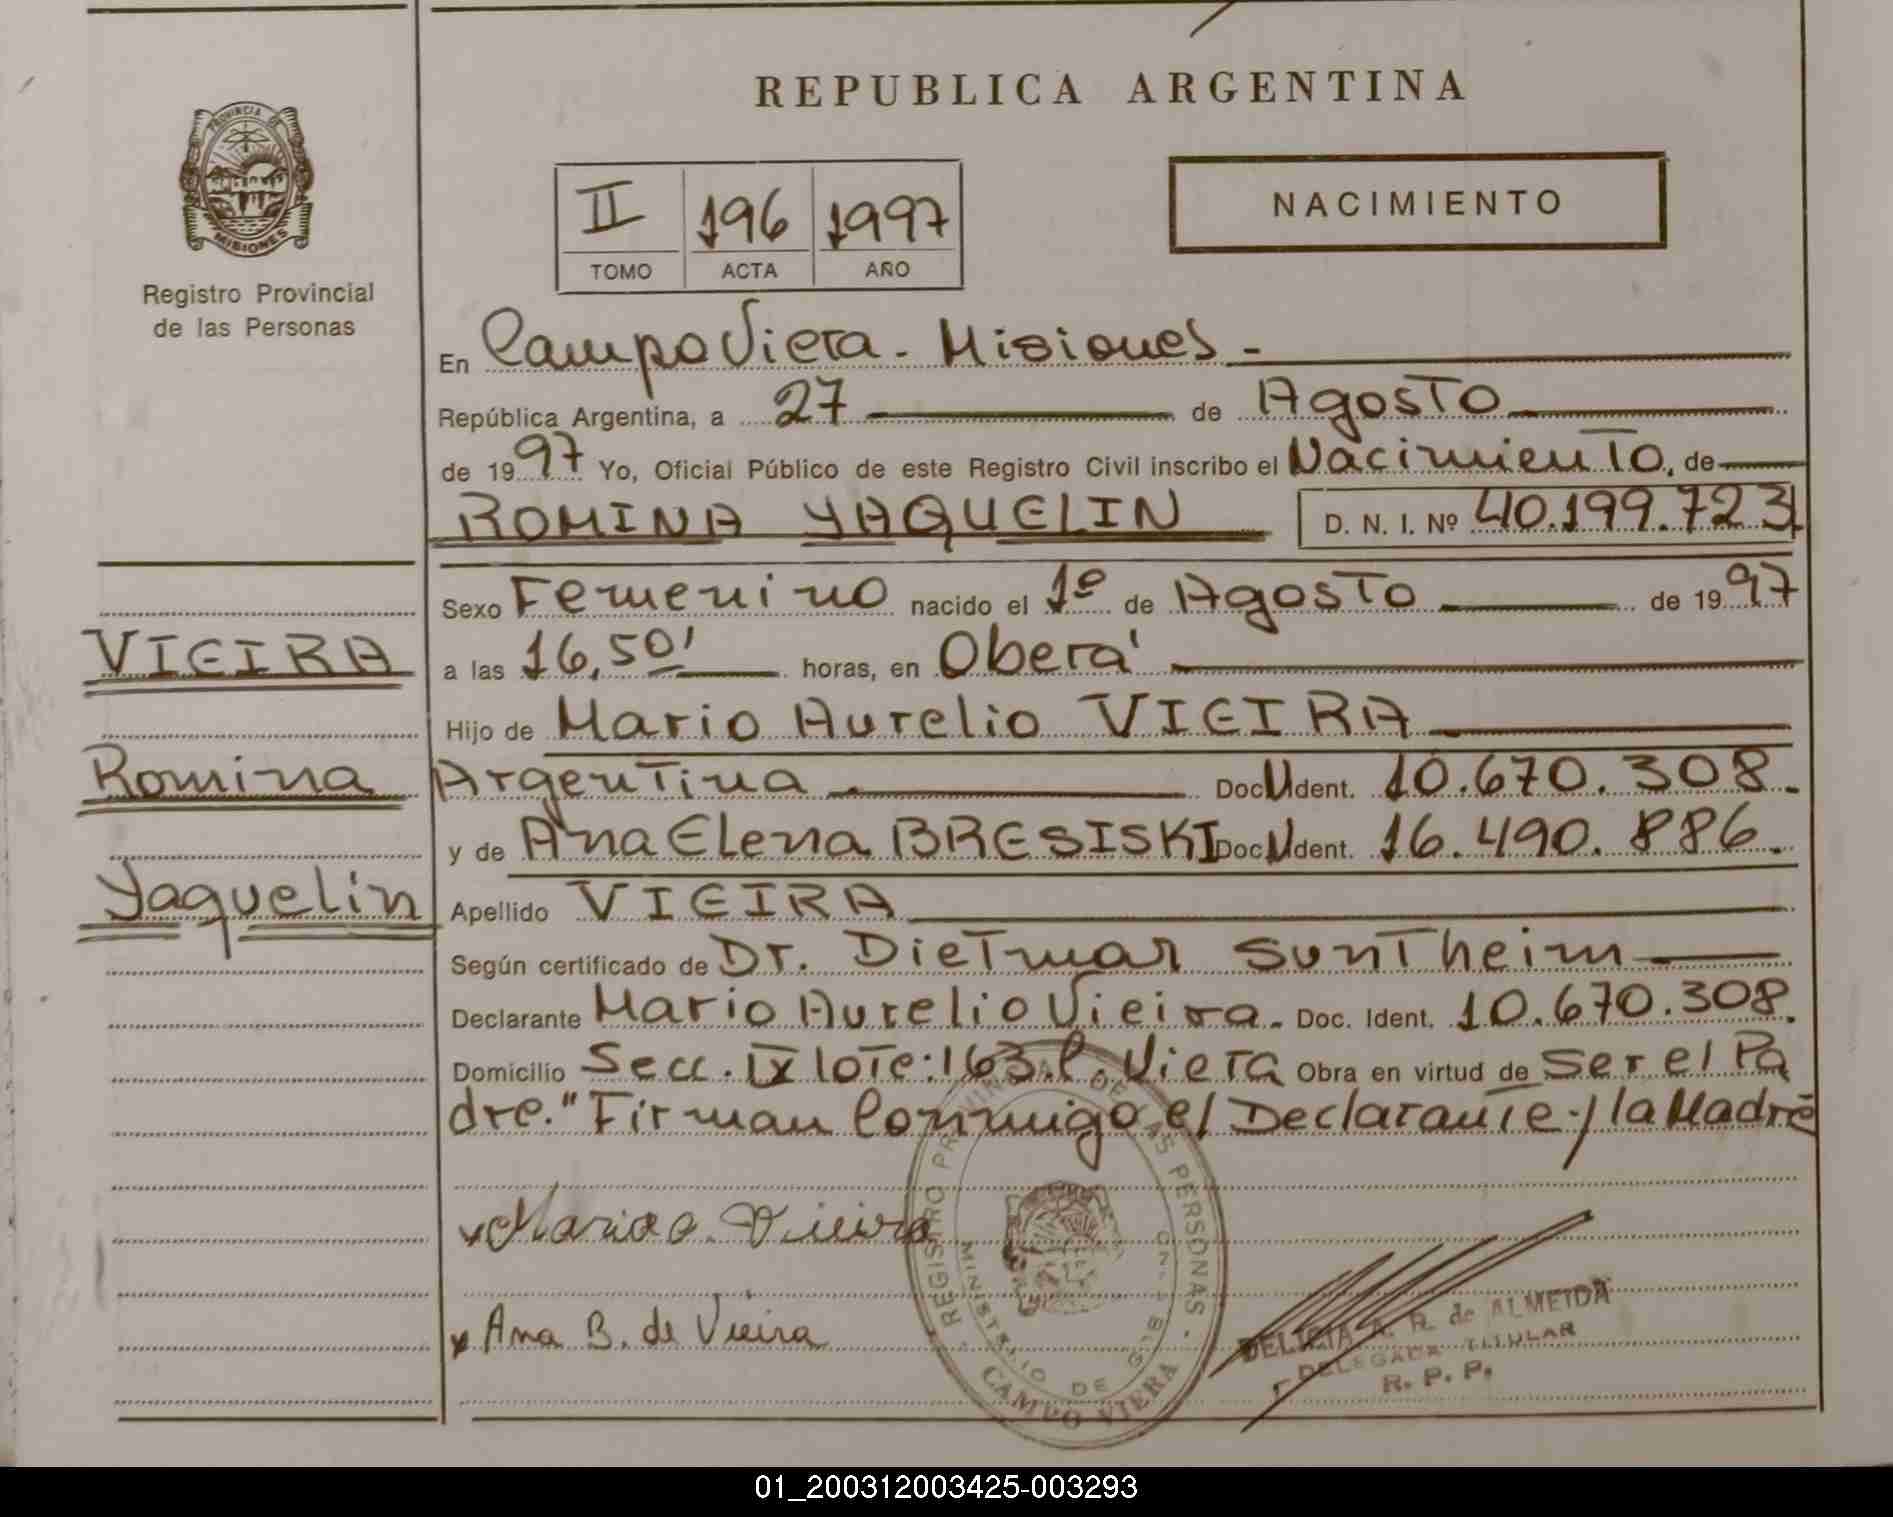 REPUBLICA ARGENTINA
PROVINCIA DE
MISIONES
Registro Provincial
de las Personas
II 196 1997
TOMO ACTA AÑO
NACIMIENTO
En Campo Viera - Misiones -
República Argentina, a 27 de Agosto
de 1997 Yo, Oficial Público de este Registro Civil inscribo el Nacimiento, de
ROMINA YAQUELIN D. N. I. Nº 40.199.723
Sexo Femenino nacido el 1º de Agosto de 1997
a las 16,50' horas, en Oberá
Hijo de Mario Aurelio VIEIRA
Argentina Doc U Ident. 10.670.308.
y de Ana Elena BRESISKI Doc U Ident. 16.490.886.
Apellido VIEIRA
Según certificado de Dr. Dietmar Suntheim
Declarante Mario Aurelio Vieira. Doc. Ident. 10.670.308.
Domicilio Secc. IX lote: 163. C. Viera Obra en virtud de Ser el Pa
dre." Firman Conmigo el Declarante y la Madre
VIEIRA
Romina
Yaquelin
x Mario A. Vieira
x Ana B. de Vieira
REGISTRO PROVINCIAL DE LAS PERSONAS
MINISTERIO DE GOB.
CAMPO VIERA
DELICIA A. R. de ALMEIDA
DELEGADA TITULAR
R. P. P.
01_200312003425-003293